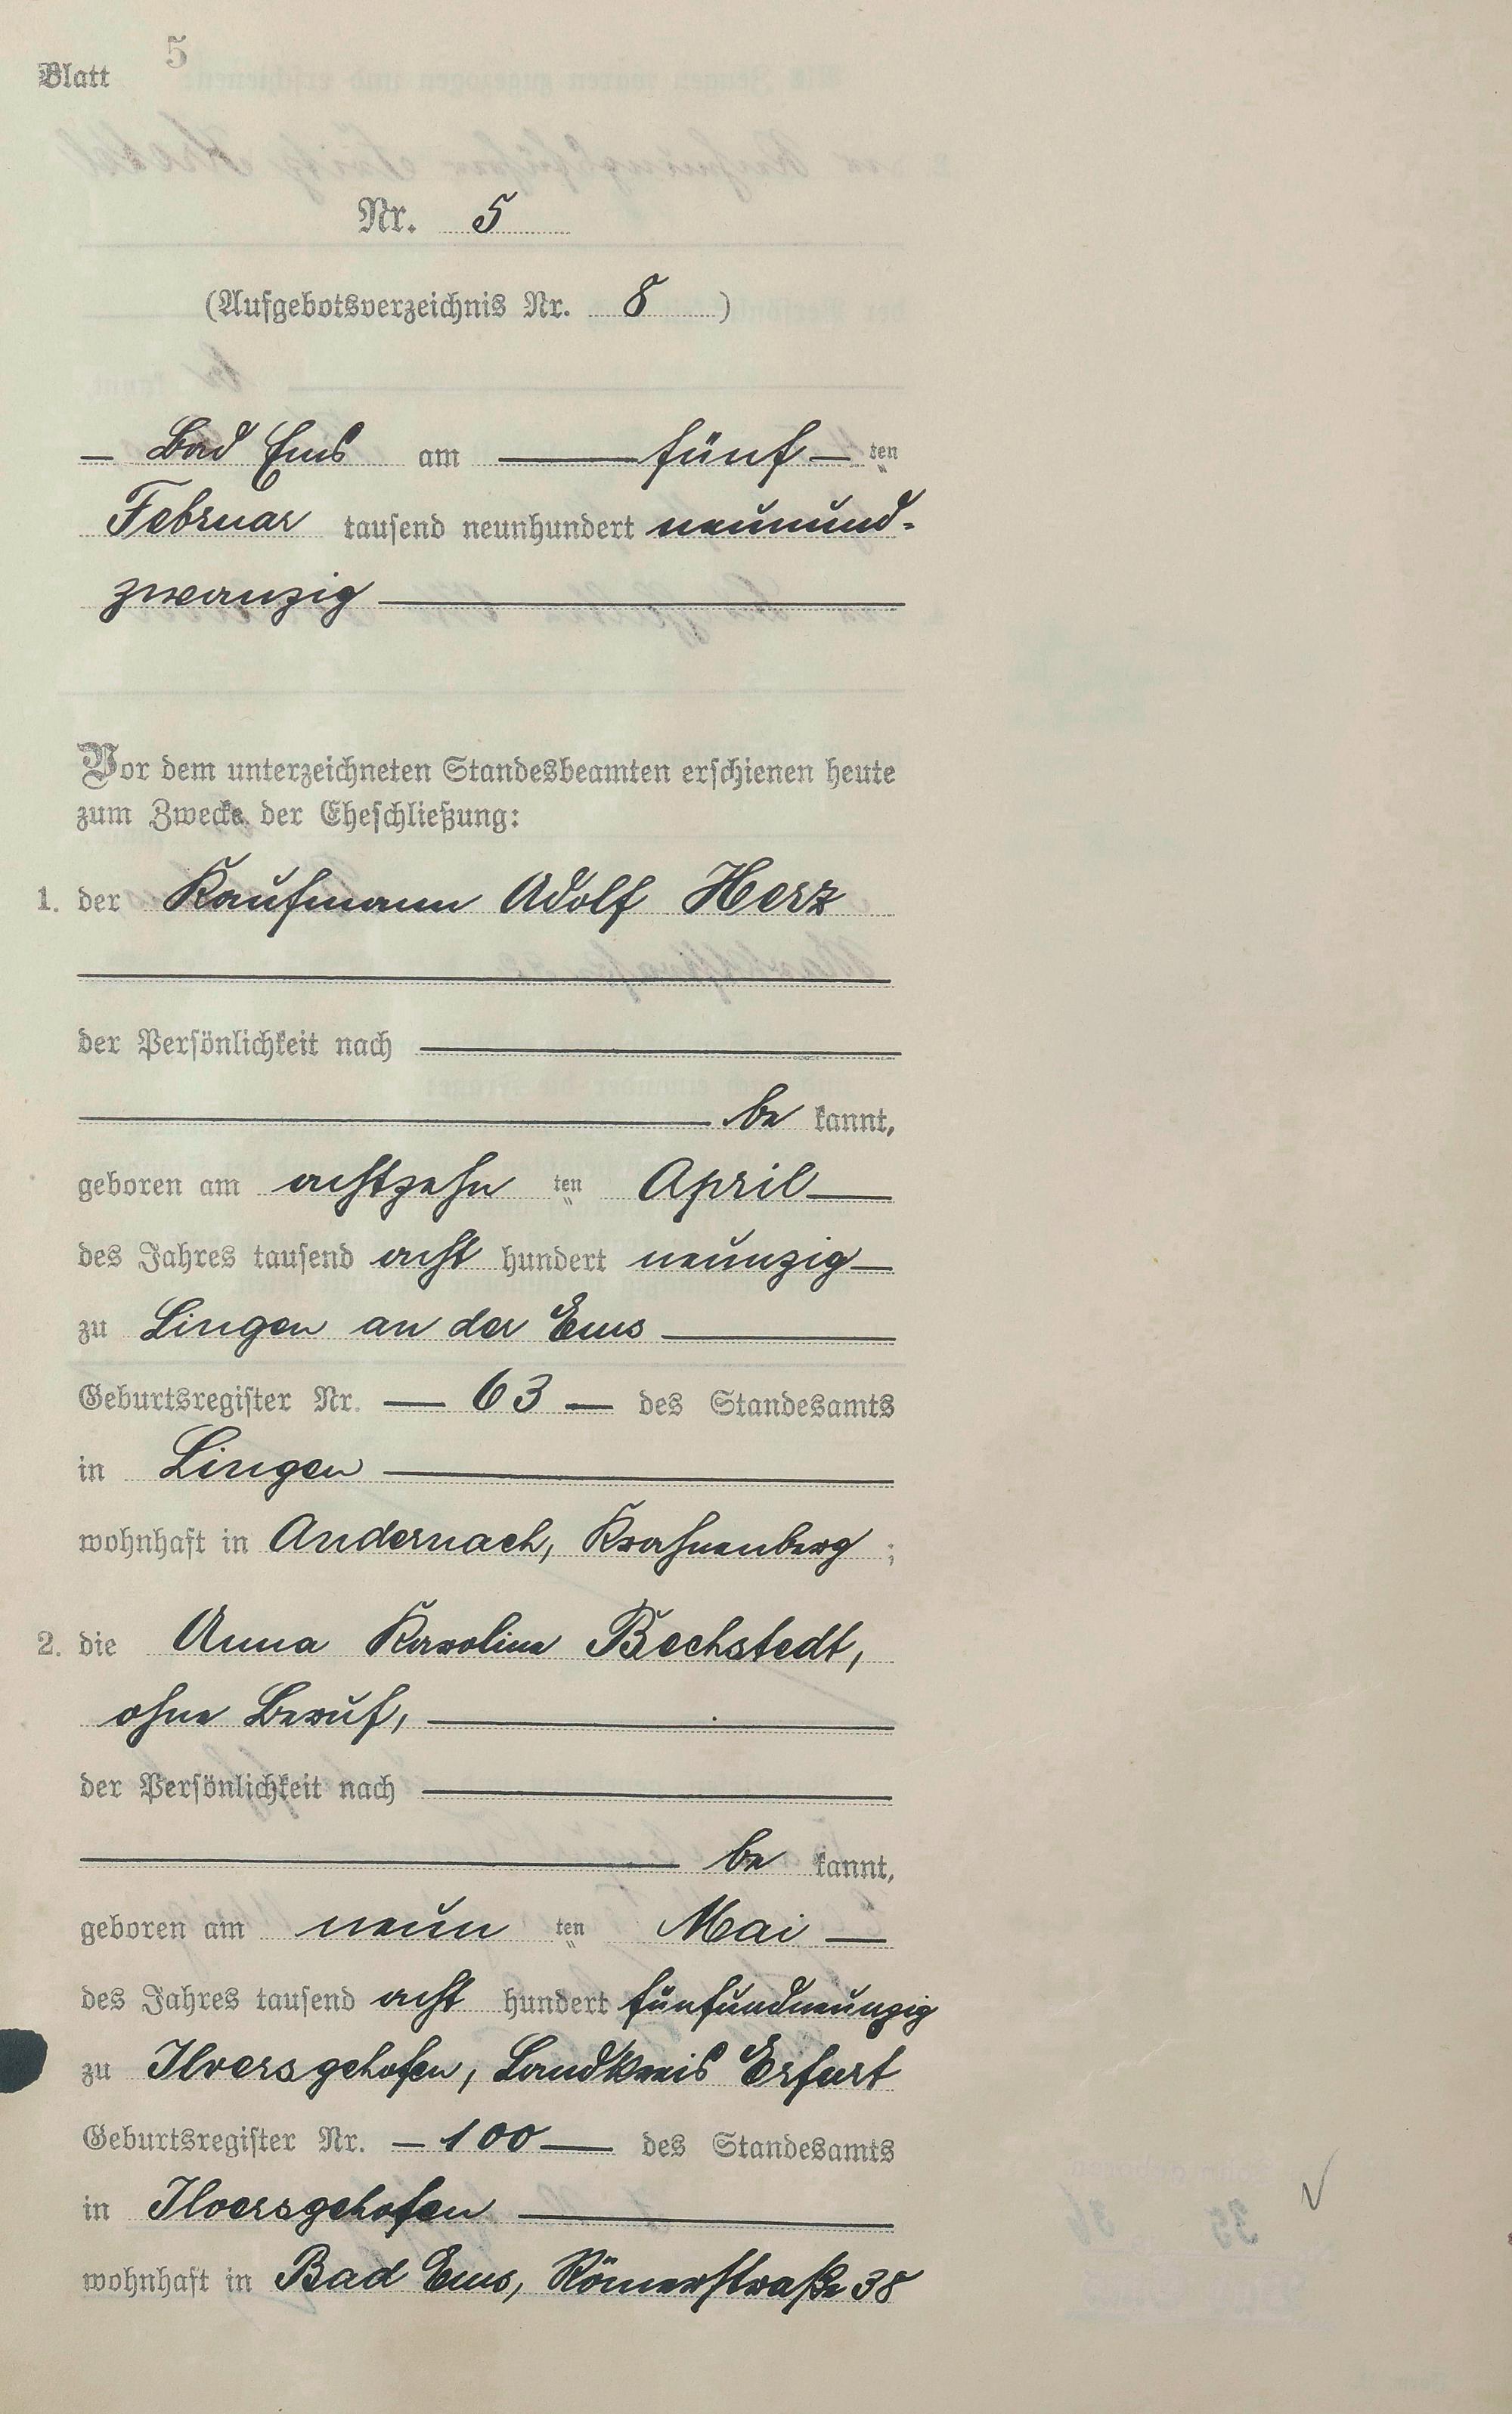 Blatt 5
Nr. 5
(Aufgebotsverzeichnis Nr. 8)
— Bad Ems am — fünf — ten
Februar tausend neunhundert neunund-
zwanzig —
Vor dem unterzeichneten Standesbeamten erschienen heute
zum Zwecke der Eheschließung:
1. der Kaufmann Adolf Herz
der Persönlichkeit nach —
— be kannt,
geboren am achtzehn ten April —
des Jahres tausend acht hundert neunzig —
zu Lingen an der Ems —
Geburtsregister Nr. — 63 — des Standesamts
in Lingen —
wohnhaft in Andernach, Krahnenberg ;
2. die Anna Karolina Bechstedt,
ohne Beruf, —
der Persönlichkeit nach —
— be kannt,
geboren am neun ten Mai —
des Jahres tausend acht hundert fünfundneunzig
zu Ilversgehofen, Landkreis Erfurt
Geburtsregister Nr. — 100 — des Standesamts
in Ilversgehofen —
wohnhaft in Bad Ems, Römerstraße 38